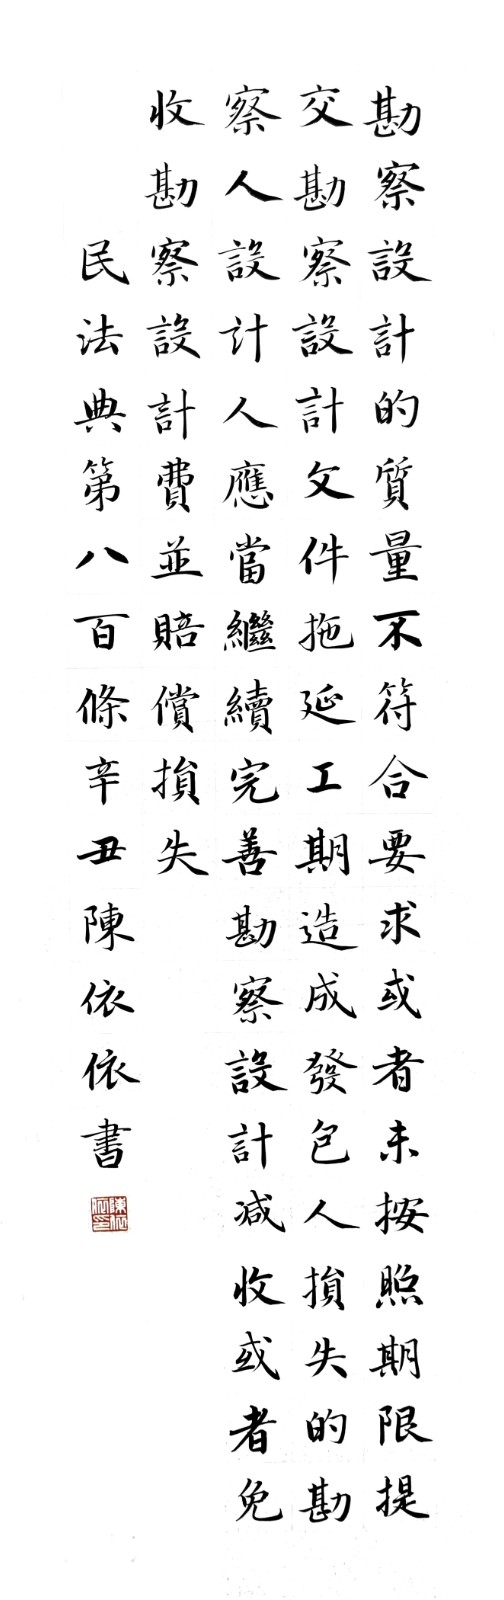 勘察設計的質量不符合要求或者未按照期限提
交勘察設計文件拖延工期造成發包人損失的勘
察人設計人應當繼續完善勘察設計減收或者免
收勘察設計費並賠償損失
民法典第八百條辛丑陳依依書